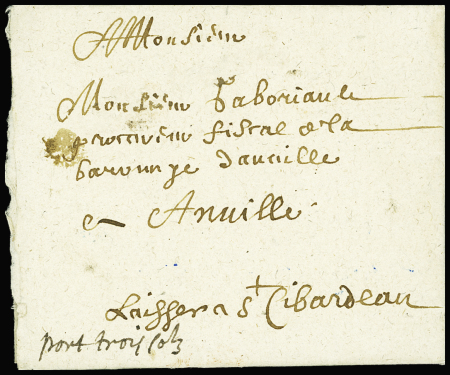 A Monsieur
Monsieur Taboriault
procureur fiscal de la
baronnye danville
a Anville
Laisser a St Cibardeau
port trois solz